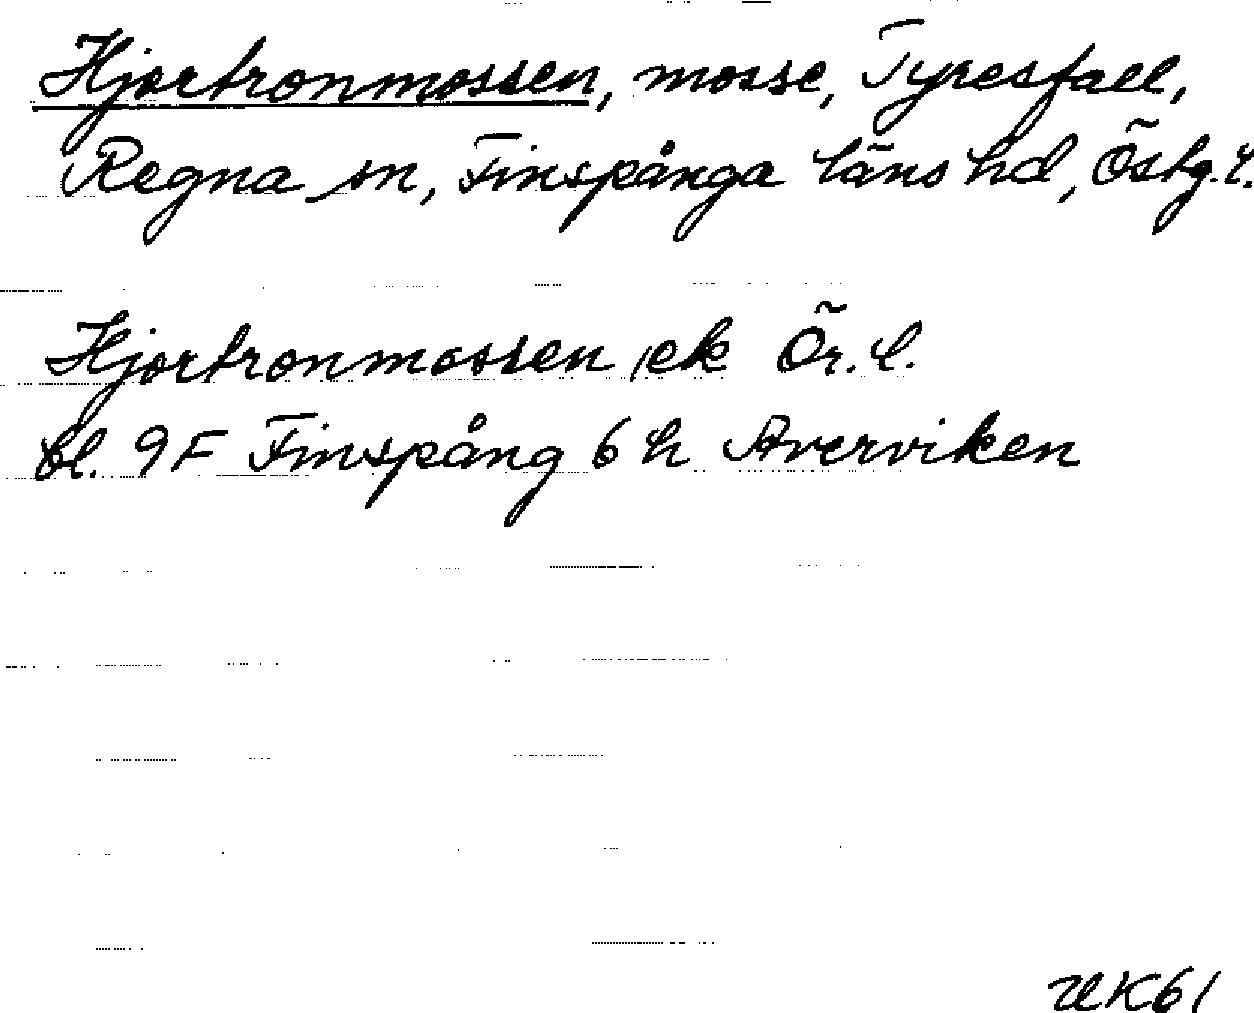 Hjortronmossen, mosse, Tyresfall,
Regna sn, Finspånga läns hd, Östg.l.
Hjortronmossen ek Ör. l.
bl. 9F Finspång 6 h Averviken
UK61